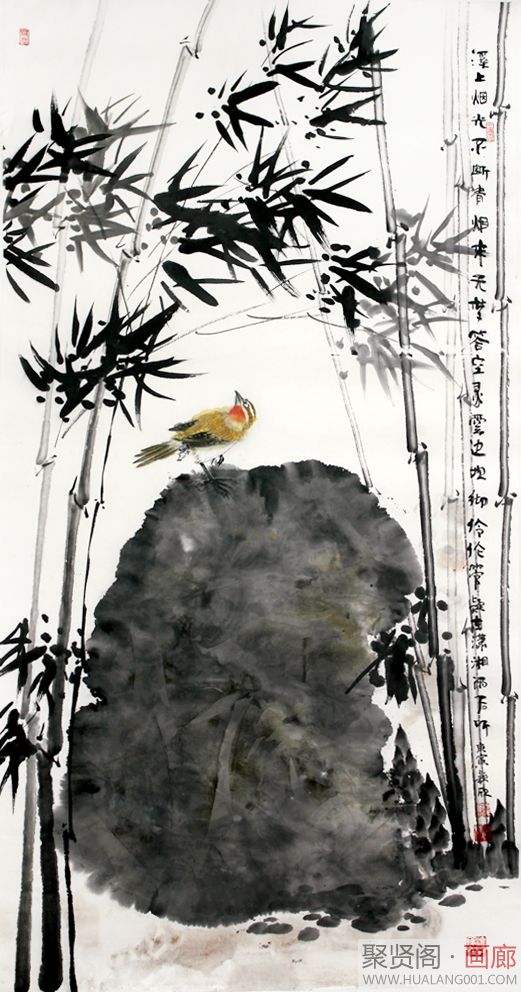 溪上烟光不断青烟来无梦答空灵雲边如御伶伦管疑在潇湘雨后听庚寅
聚贤阁·画廊
WWW.HUALANG001.COM